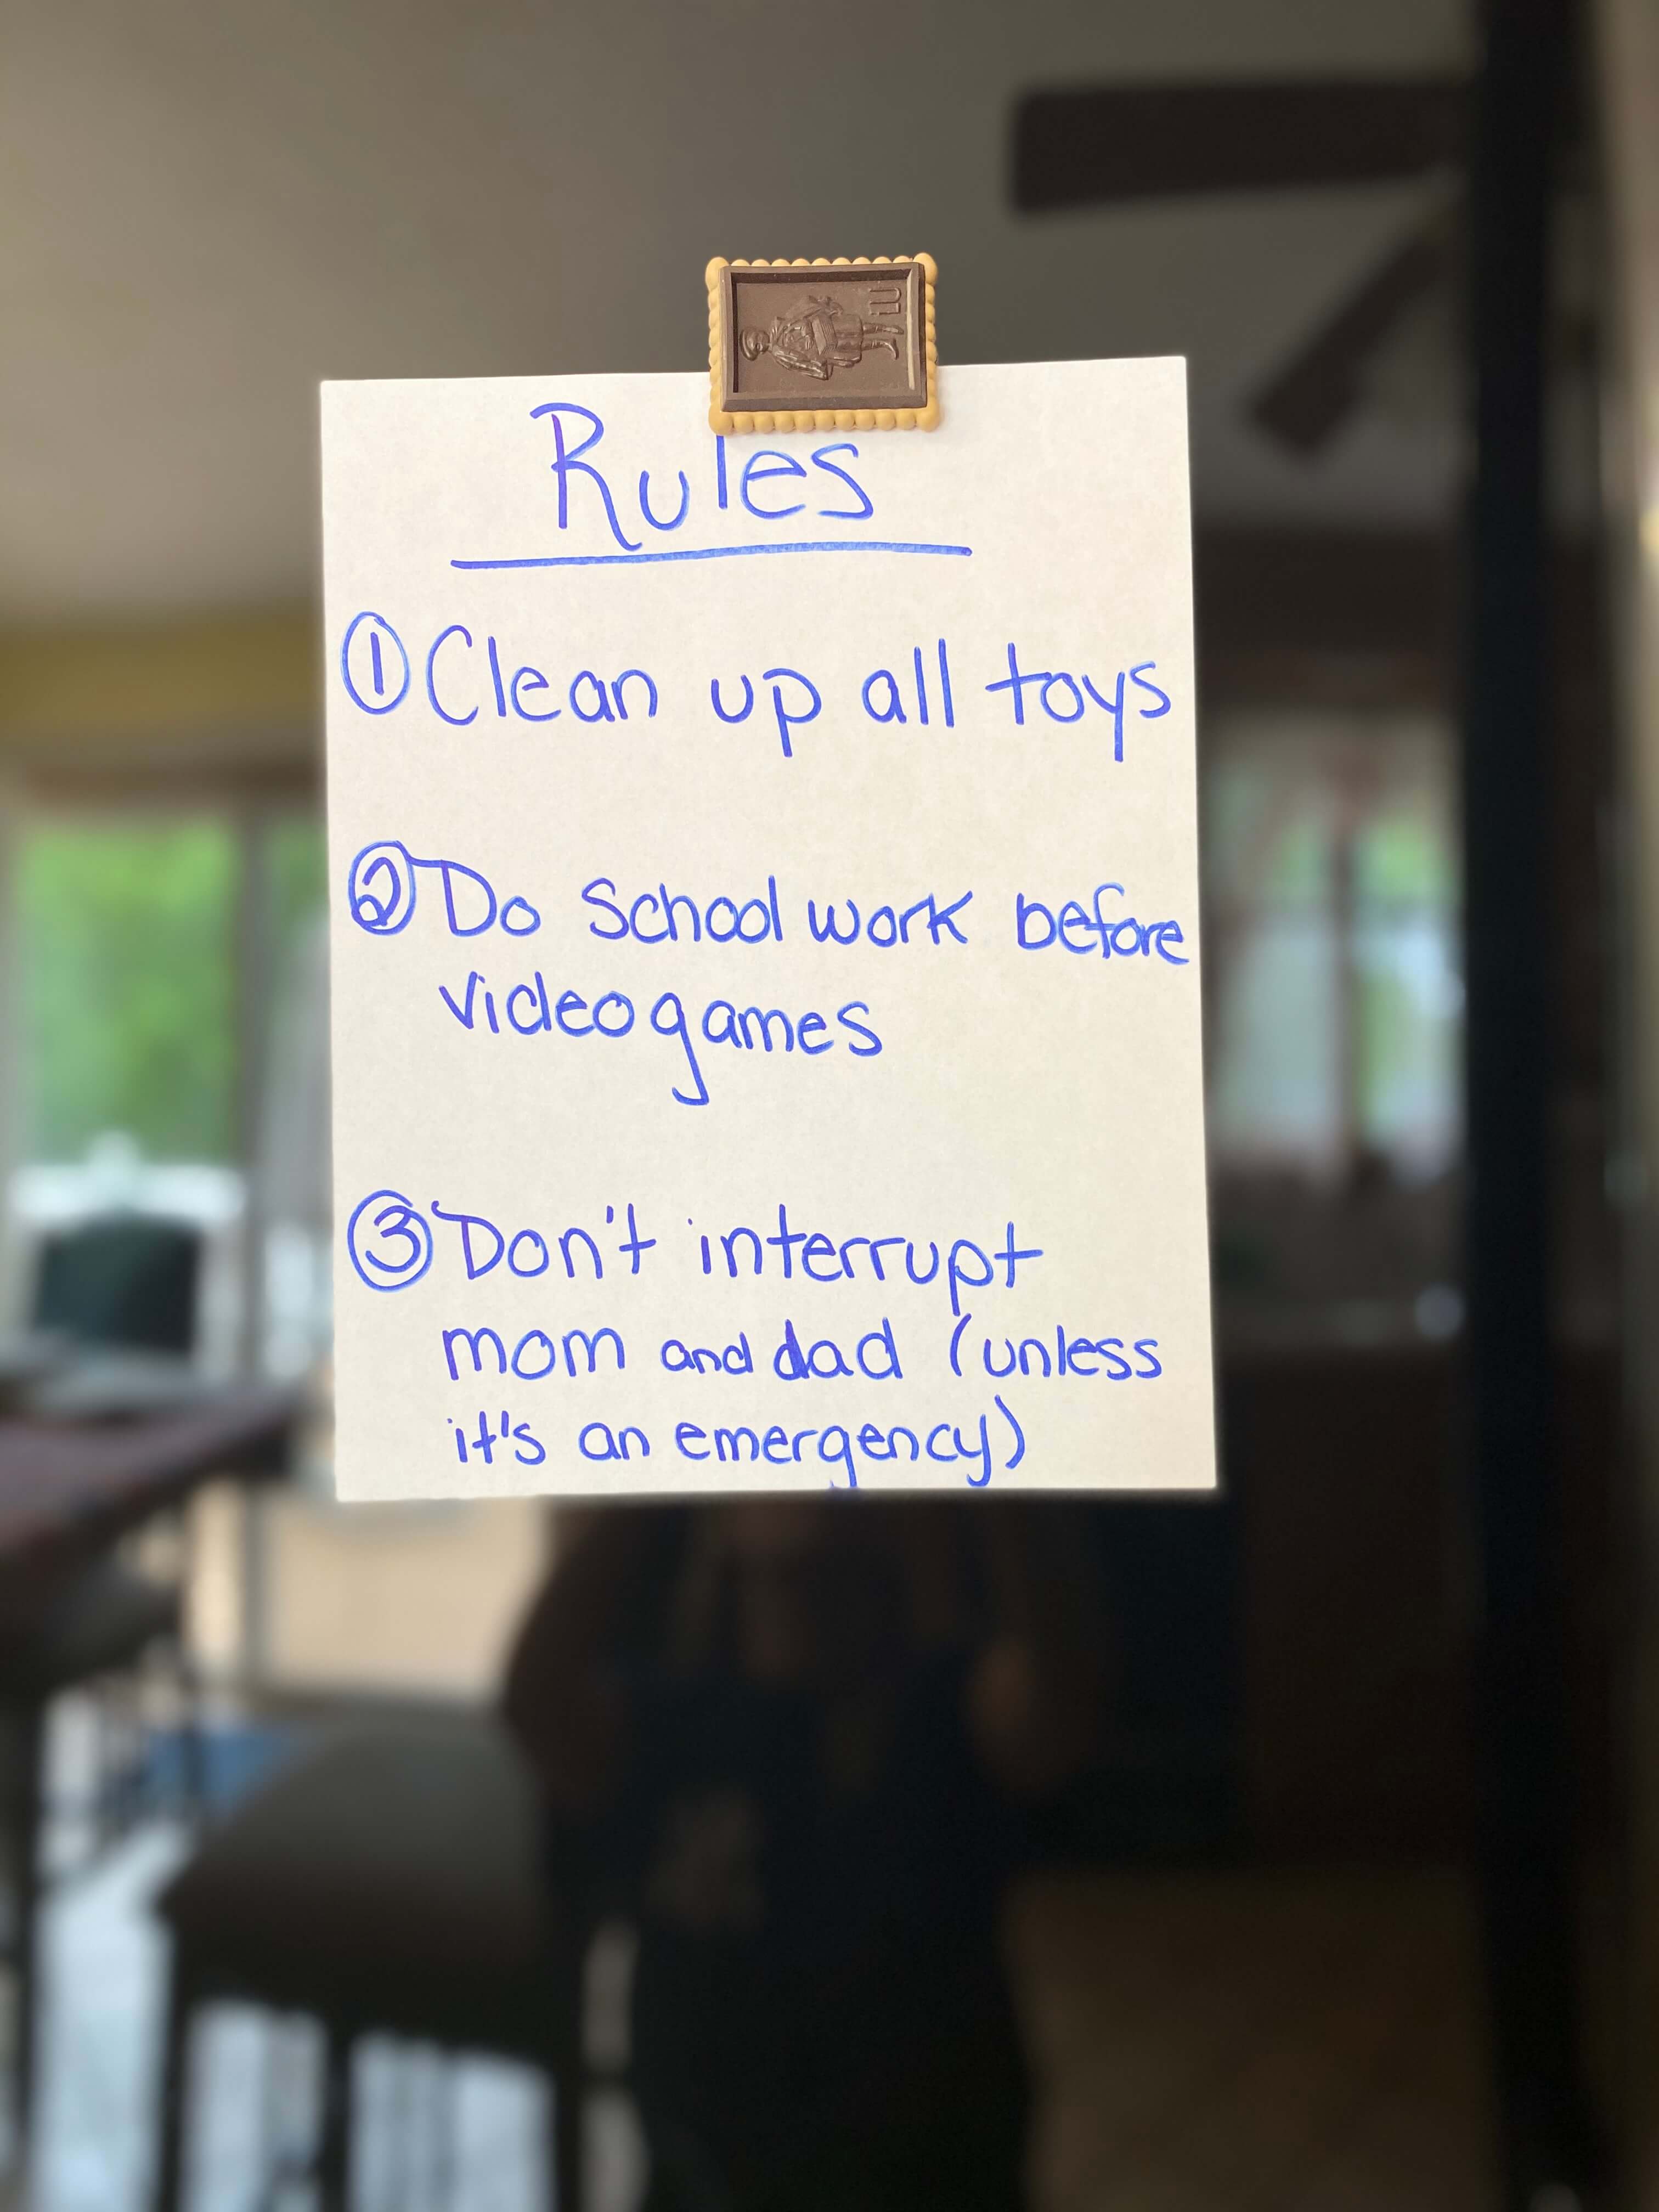 LU
Rules
① Clean up all toys
② Do school work before
videogames
③ Don't interrupt
mom and dad (unless
it's an emergency)